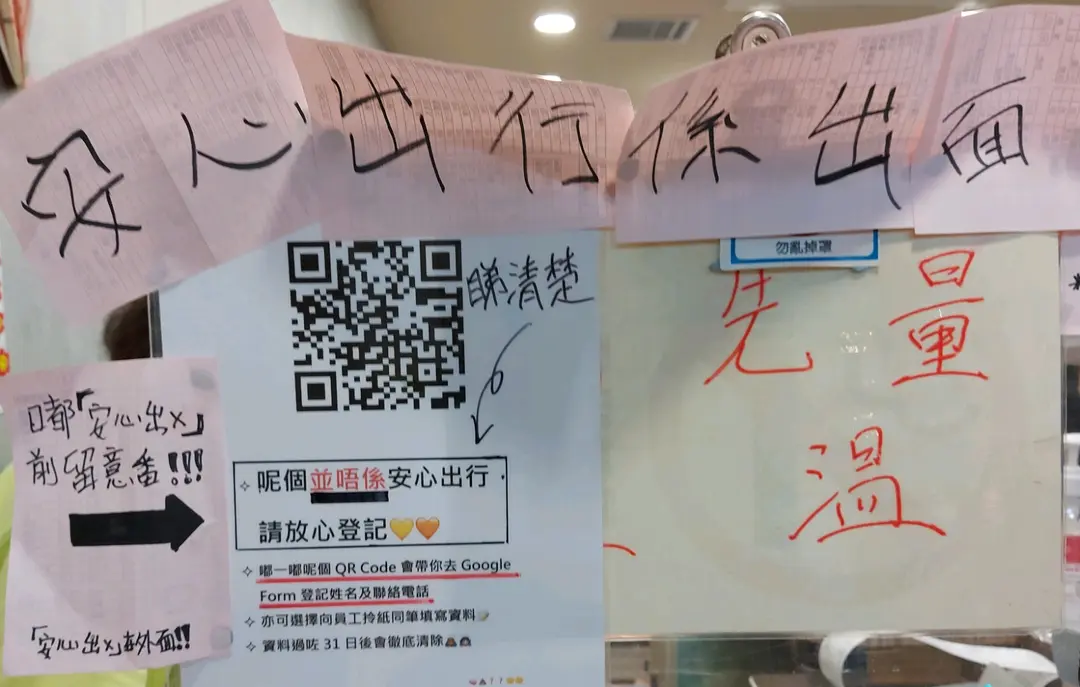 安心出行係出面
勿亂掉罩
睇清楚
先量
溫
嘟「安心出X」
前留意番!!!
「安心出X」在外面!!
呢個並唔係安心出行
請放心登記💛🧡
嘟一嘟呢個 QR Code 會帶你去 Google
Form 登記姓名及聯絡電話
亦可選擇向員工拎紙同筆填寫資料📝
資料過咗 31 日後會徹底清除